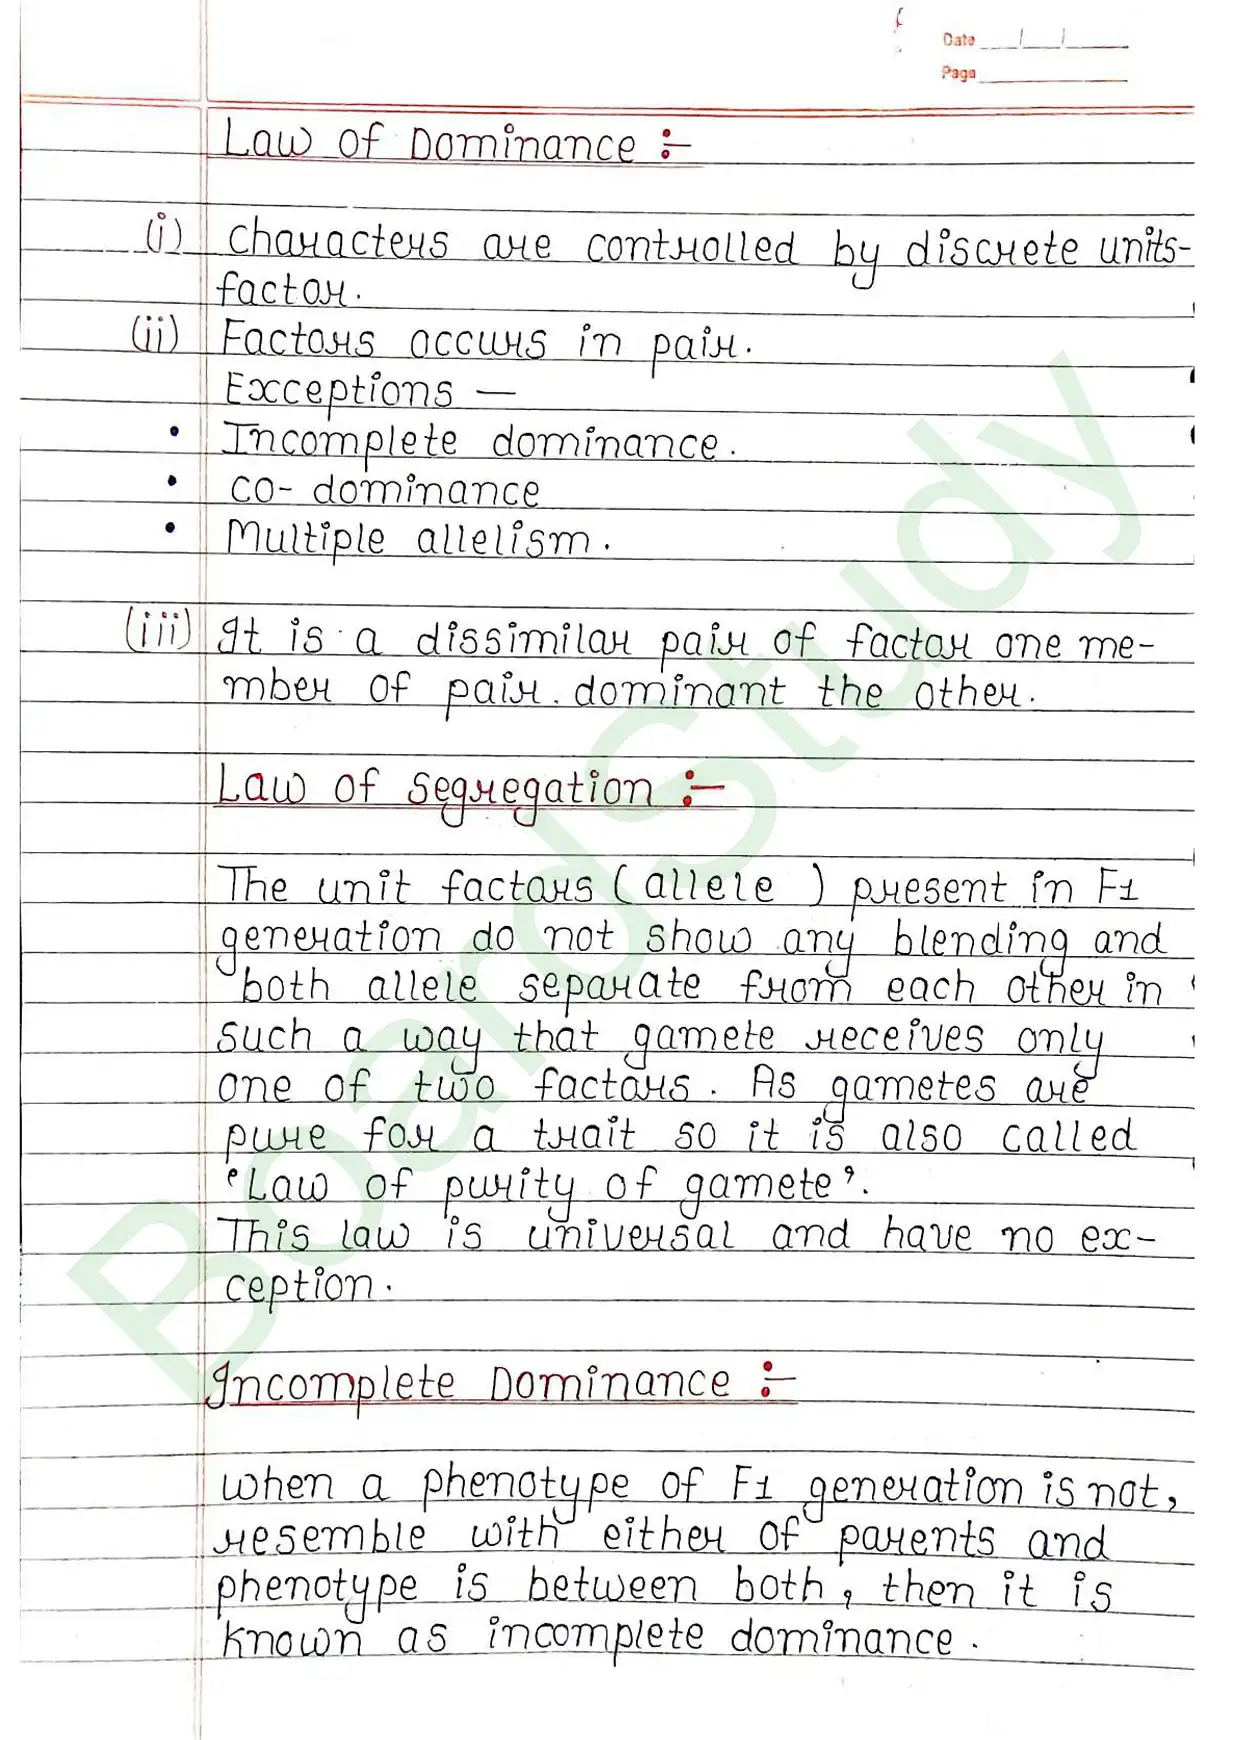 Date __/__/__
Page
Law of Dominance :-
(i) characters are controlled by discrete units-
factor.
(ii) Factors occurs in pair.
Exceptions —
• Incomplete dominance.
• co-dominance
• Multiple allelism.
(iii) It is a dissimilar pair of factor one me-
mber of pair. dominant the other.
Law of segregation :-
The unit factors (allele ) present in F1
generation do not show any blending and
both allele separate from each other in
such a way that gamete receives only
one of two factors. As gametes are
pure for a trait so it is also called
‘Law of purity of gamete’.
This law is universal and have no ex-
ception.
Incomplete Dominance :-
when a phenotype of F1 generation is not,
resemble with either of parents and
phenotype is between both, then it is
known as incomplete dominance.
BoardStudy